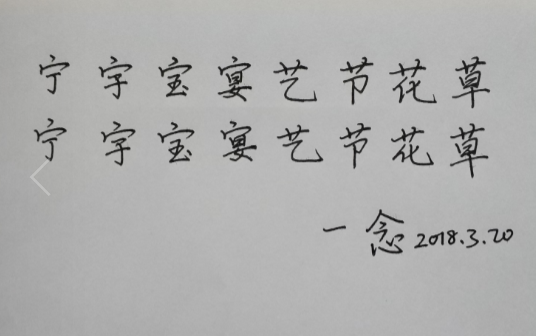 宁字宝宴艺节花草
宁字宝宴艺节花草
一念 2018.3.20